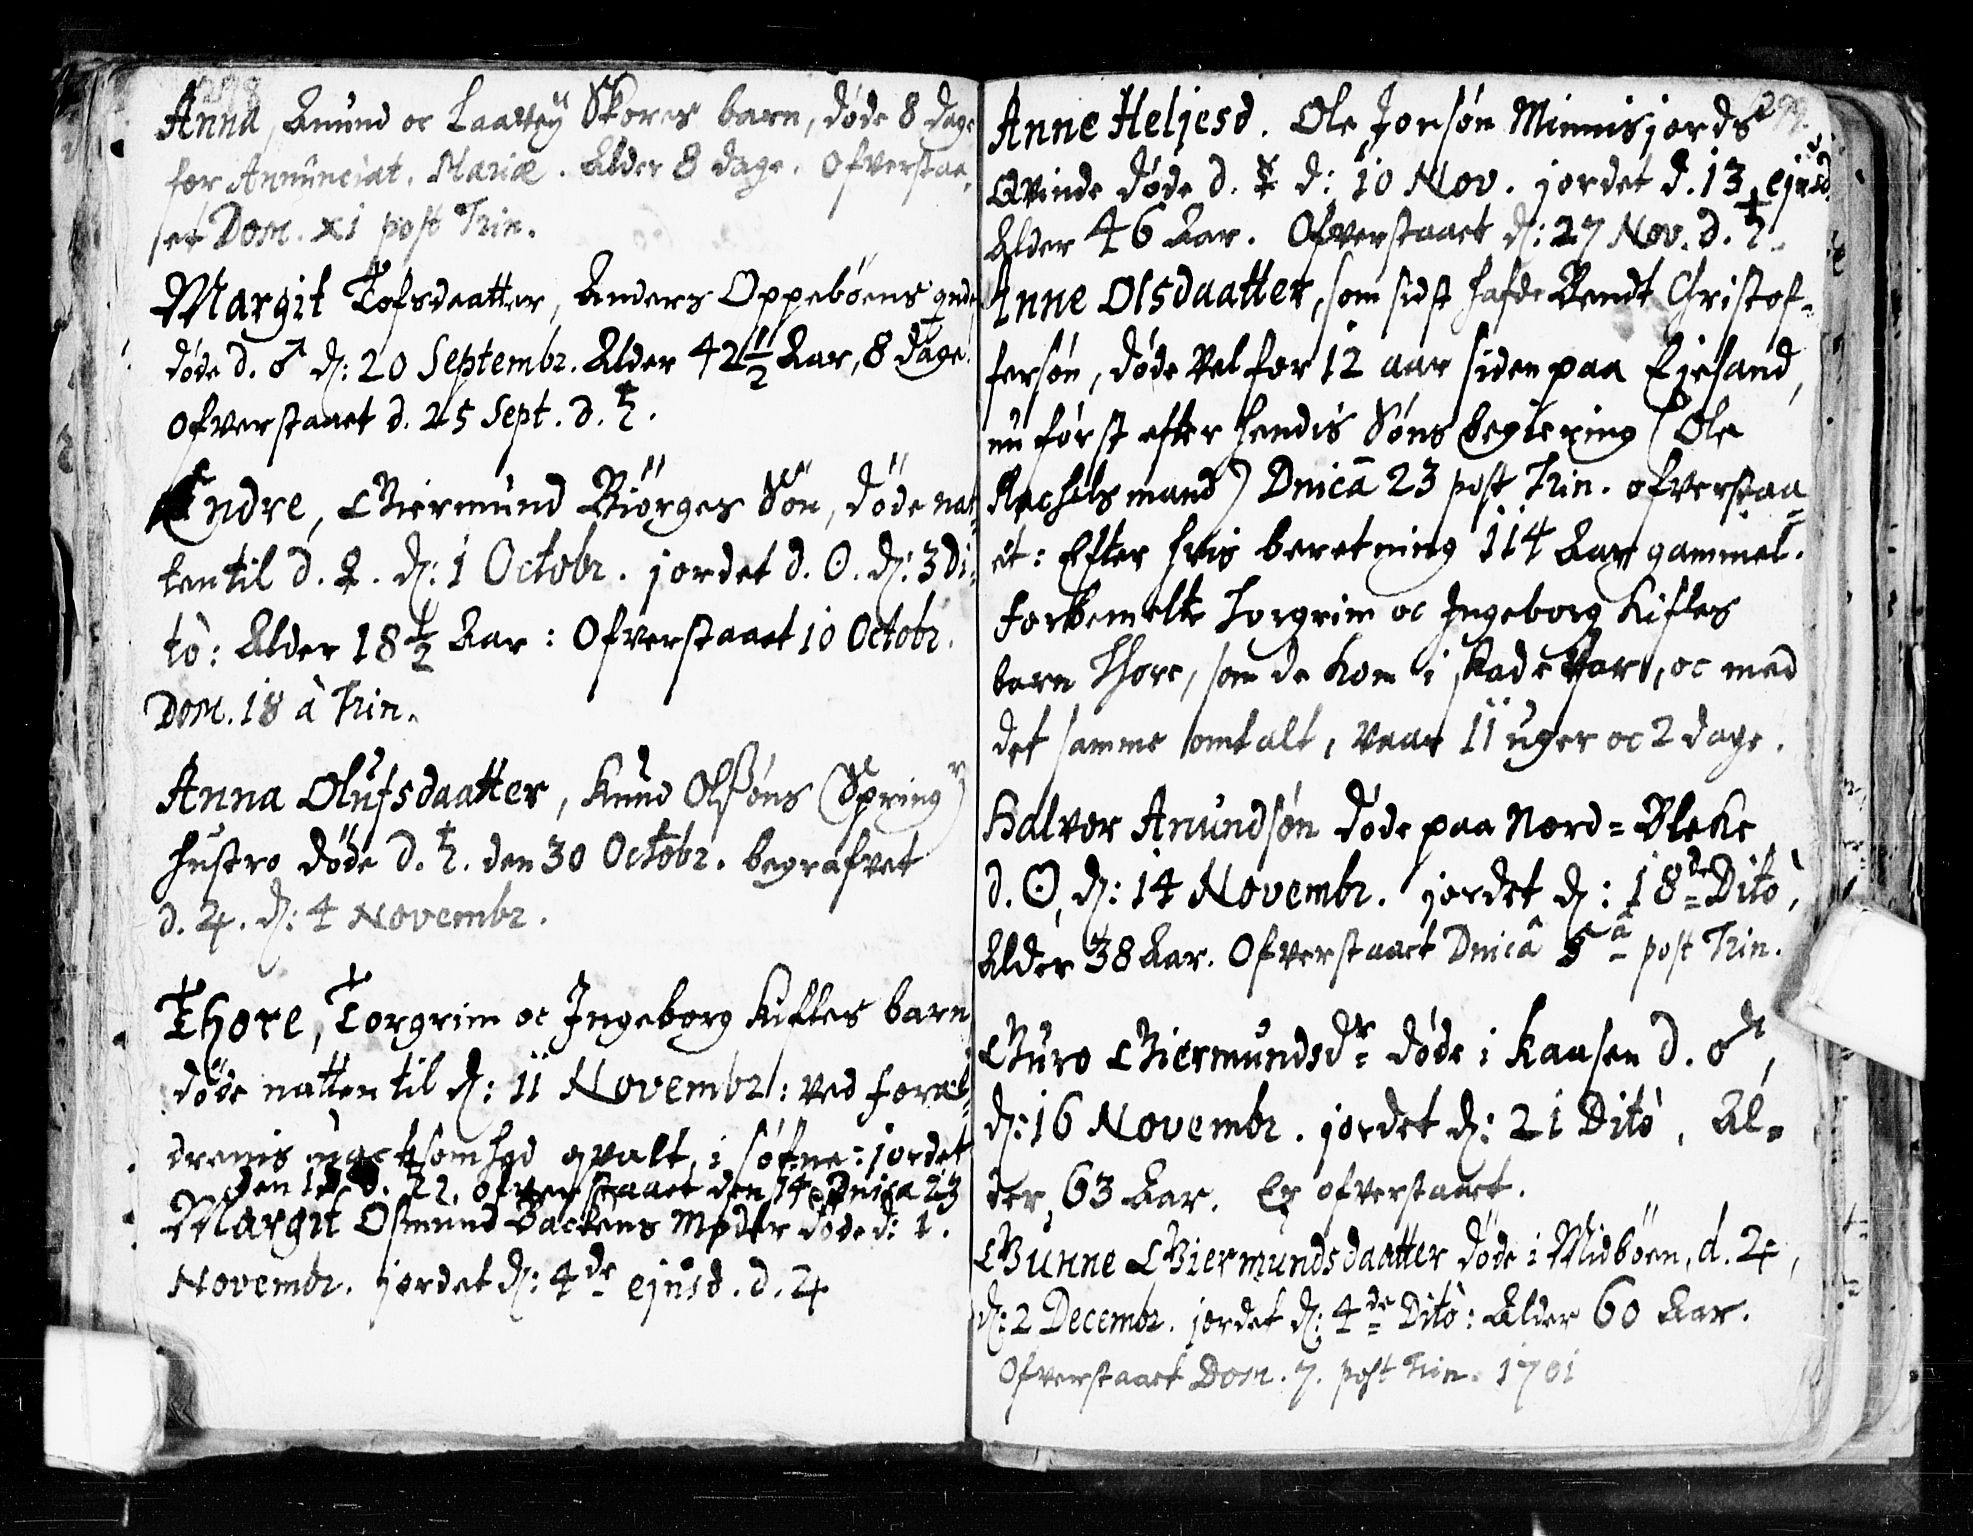 298
Anna, Anund oc Laavej Skores barn, døde 8 dage
for Annunciat. Mariæ. Alder 8 dage. Ofverstaa-
et Dom. XI post Trin.
Margit Tofsdaatter, Anders Oppebøens qvde
døde d. ♂ d: 20 Septembr. Alder 42 1/2 Aar, 8 dage.
ofverstaaet d. 25 Sept. d. ♄.
Endre, Giermund Biørges Søn, døde nat-
ten til d. ♀. d: 1 Octobr. jordet d. ☉. d: 3 Di-
to: Alder 18 1/2 Aar: Ofverstaaet 10 Octobr.
Dom. 18 à Trin.
Anna Olufsdaatter, Knud Olssøns (Spring)
hustro døde d. ♄. den 30 Octobr. begrafvet
d. ♃. d: 4 Novembr.
Thore, Torgrim oc Ingeborg Kifles barn
døde natten til d: 11 Novembr: ved foræl-
drenis uactsomhed qvalt i søfne: jordet
den d. ofverstaaet den 14 Dnica 23
Margit Osmund Backens Moder døde d: 1.
Novembr. jordet d: 4de ejusd. d. ♃
299.
Anne Heljesd. Ole Jorsøn Minnisjords
Qvinde døde d. ☿ d: 10 Nov. jordet d. 13 ejusd.
Alder 46 Aar. Ofverstaaet d: 27 Nov. d. ♄.
Anne Olsdaatter, som sidst hafde Bendt Christof-
fersøn, døde vel for 12 aar siden paa Ejesand,
nu først efter hendis Søns begiering (Ole
Rachels mand) Dnicâ 23 post Trin. ofverstaa-
et: Efter hvis beretning 114 Aar gammel.
Forbemelte Torgrim oc Ingeborg Kifles
barn Thore, som de kom i skade for, oc med
det samme omtalt, vaar 11 uger oc 2 dage.
Halvor Anundsøn døde paa Nord-Bleke
d. ☉, d: 14 Novembr. jordet d: 18de Dito,
Alder 38 Aar. Ofverstaaet Dnicâ 5â post Trin.
Guro Giermundsdr døde i Kaasen d. ♂,
d: 16 Novembr. jordet d: 21 Dito, Al-
der, 63 Aar. Er ofverstaaet.
Gunne Giermundsdaatter døde i Midbøen, d. ♃,
d: 2 Decembr. jordet d: 4de Dito: Alder 60 Aar.
Ofverstaaet Dom. 7. post Trin. 1701